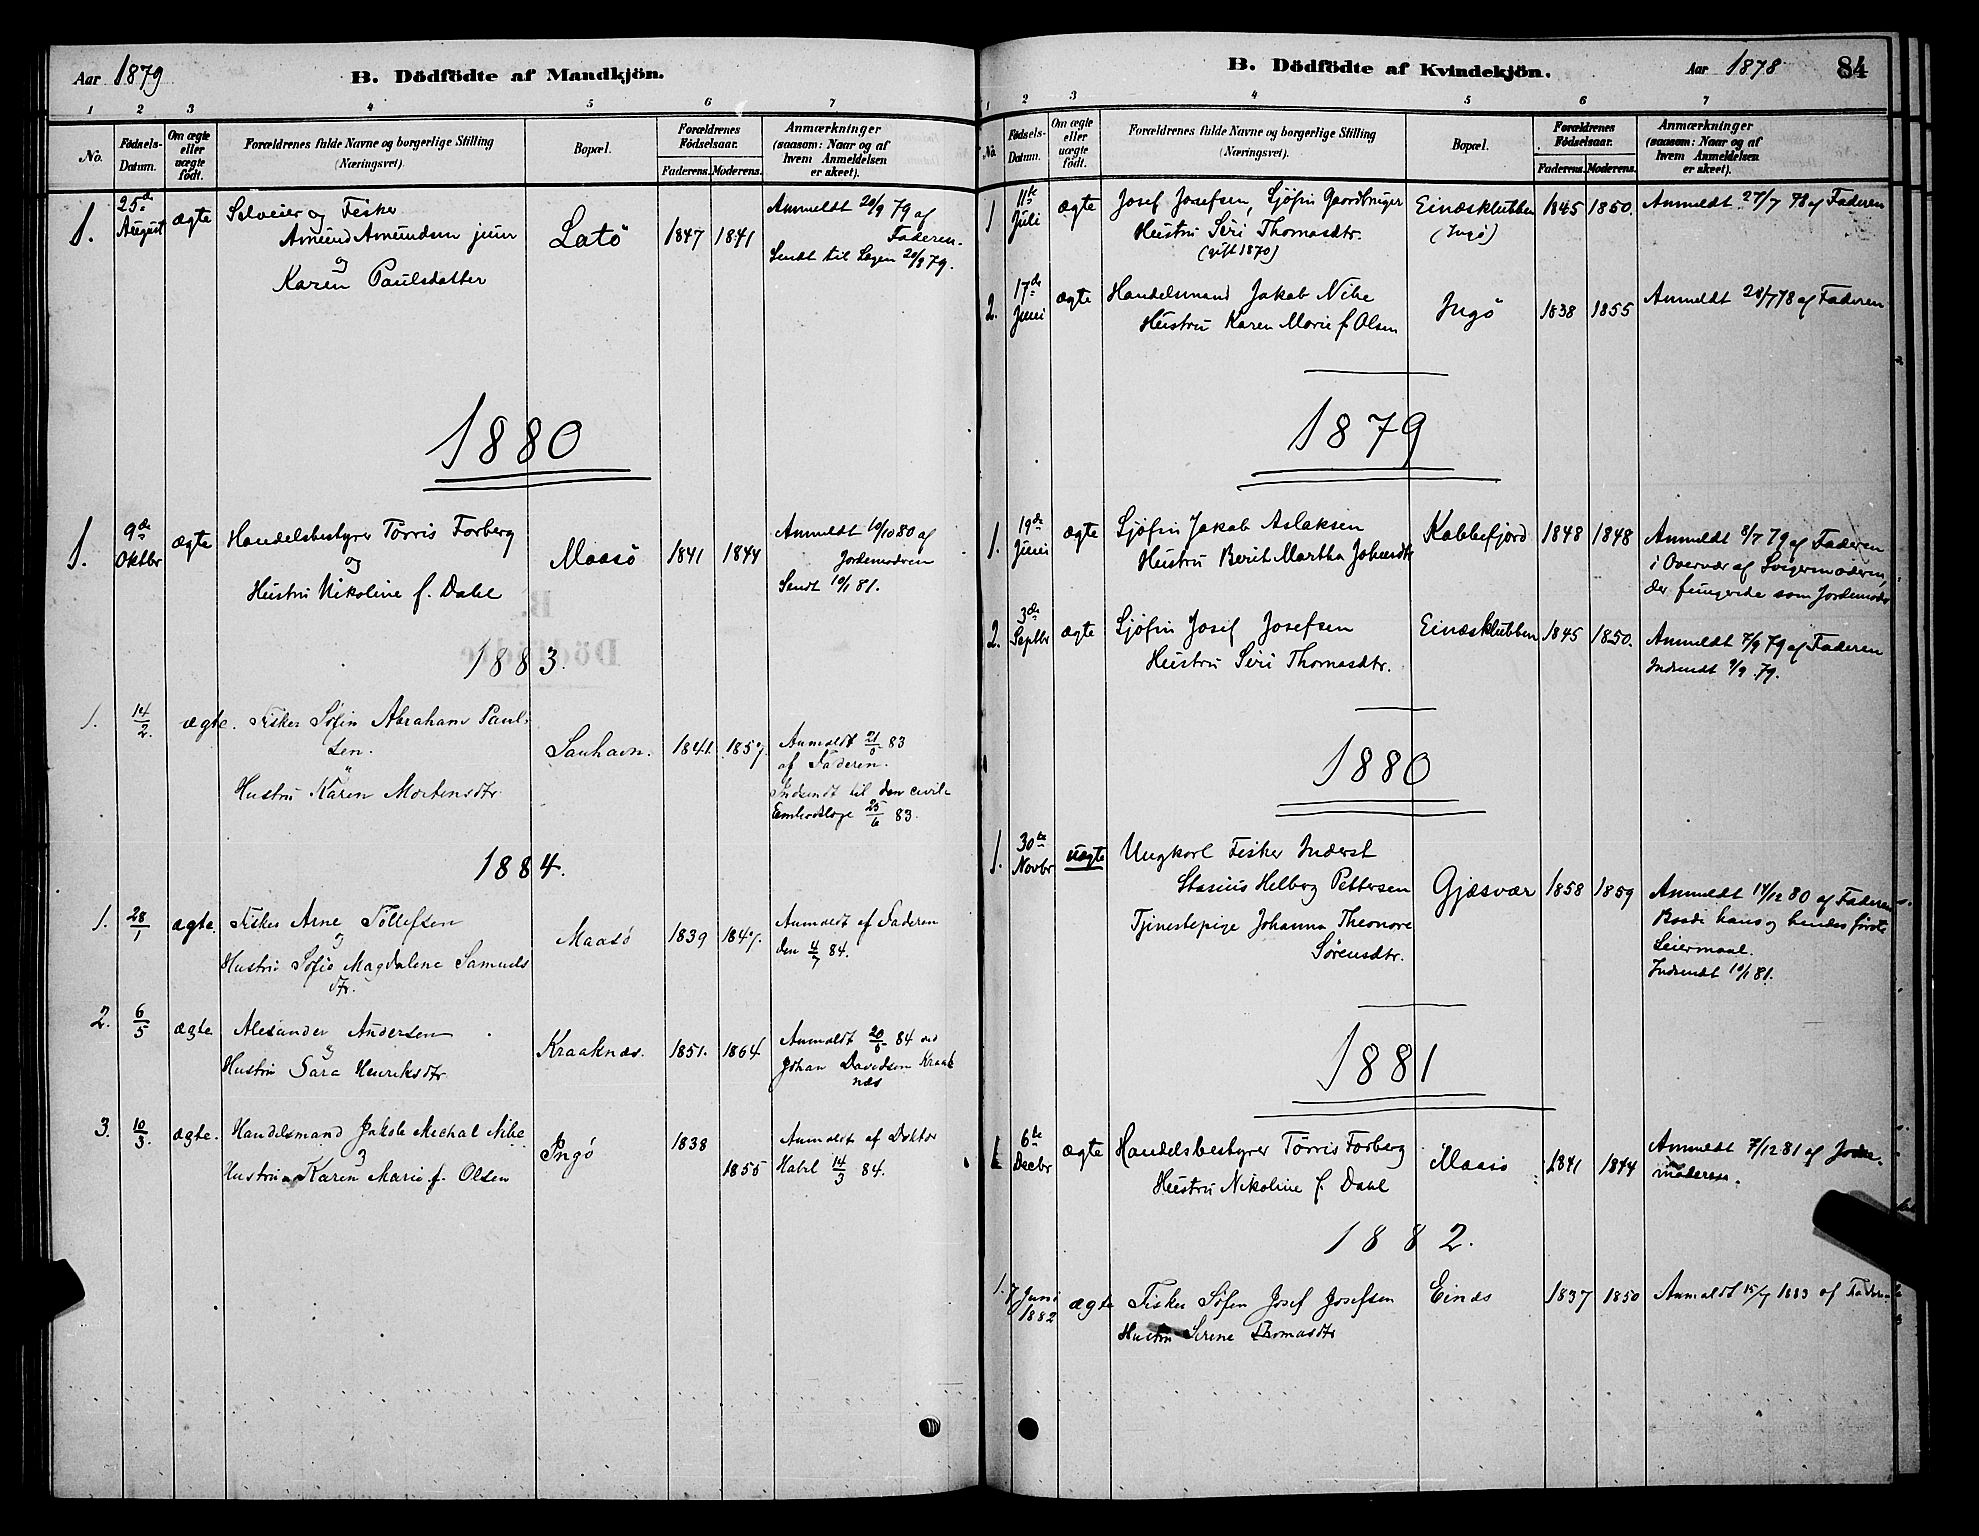 Aar 1879
B. Dödfödte af Mandkjön.
1 2 3 4 5 6 7
No.
Fødsels-
Datum.
Om ægte
eller
uægte
født.
Forældrenes fulde Navne og borgerlige Stilling
(Næringsvei).
Bopæl.
Forældrenes
Fødselsaar.
Faderens. Moderens.
Anmærkninger
(saasom: Naar og af
hvem Anmeldelsen
er skeet).
1. 25de August ægte
Selveier og Fisker
Amund Amundsen jun
og
Karen Paulsdatter
Latö
1847 1841
Anmeldt 20/9 79 af
Faderen.
Sendt til Legen 20/9 79.
1880
1. 9de Oktbr ægte
Handelsbestyrer Törris Forberg
og
Hustru Nikoline f. Dahl
Maasö
1841 1844
Anmeldt 10/10 80 af
Jordemoderen
Sendt 10/1 81.
1883.
1. 14/2. ægte.
Fisker Søfin Abraham Paul-
sen.
Hustru Karen Mortensdtr
Sanhavn.
1841. 1857.
Anmeldt 21/ 83
af Faderen.
Indsendt til den civile
25/6 83.
1884.
1. 28/1 ægte.
Fisker Arne Tollefsen
og
Hustru Sofie Magdalene Samuels
dtr.
Maasö
1839 1847.
Anmeldt af Faderen
den 4/7 84.
2. 6/5 ægte
Alexander Andersen
og
Hustru Sara Henriksdtr
Kraaknæs.
1851. 1864
Anmeldt 20/5 84 ved
Johan Davidsen Kraak
næs
3. 10/3. ægte.
Handelsmand Jakob Mechal Nibe
og
Hustru Karen Marie f. Olsen
Ingö
1838
1855
Anmeldt af Doktor
14/3 84.
B. Dödfödte af Kvindekjön.
Aar 1878
84
1 2 3 4 5 6 7
No.
Fødsels-
Datum.
Om ægte
eller
uægte
født.
Forældrenes fulde Navne og borgerlige Stilling
(Næringsvei).
Bopæl.
Forældrenes
Fødselsaar.
Faderens. Moderens.
Anmærkninger
(saasom: Naar og af
hvem Anmeldelsen
er skeet).
1 11te Juli ægte
Josef Josefsen, Sjøfin Gaardbruger
Hustru Siri Thomasdtr.
(gift 1870)
Einæsklubben
(Ingö)
1845 1850.
Anmeldt 27/7 78 af Faderen
2. 17de Juni ægte
Handelsmand Jakob Nibe
Hustru Karen Marie f. Olsen
Ingö
1838 1855
Anmeldt 28/7 78 af Faderen
1879
1. 19de Juni ægte
Sjøfin Jakob Aslaksen
Hustru Berit Martha Johnsdtr
Kobbefjord
1848 1848
Anmeldt 8/7 79 af Faderen
i Overvær af Svigermoderen,
der fungerede som Jordemoder
2. 3de Septbr ægte
Sjøfin Josef Josefsen
Hustru Siri Thomasdtr.
Einæsklubben
1845 1850.
Anmeldt 7/9 79 af Faderen
Indsendt 9/9 79.
1880
1. 30te Novbr uægte
Ungkarl Fisker Inderst
Stasius Helberg Pettersen
Tjenestepige Johanna Theonore
Sørensdtr.
Gjæsvær
1858 1859
Anmeldt 14/12 80 af Faderen
Baade hans og hendes første
Leiermaal.
Indsendt 10/1 81.
1881
1 6te Decbr ægte
Handelsbestyrer Törris Forberg
Hustru Nikoline f. Dahl
Maasö
1841 1844
Anmeldt 7/12 81 af Jorde-
moderen.
1882.
1. 7 Juni 1882 ægte
Fisker Søfin Josef Josefsen
Hustru Serine Thomasdtr
Einæs
1837 1850
Anmeldt 15/7 1883 af Faderen